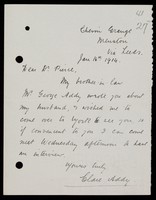 Grange
Menston
Via Leeds.
Jan 16th 1914
Dear Dr. Pierce,
My brother in law
Mr. George Addy wrote you about
my husband, & wished me to
come over to York to see you, so
if convenient to you I can come
next Wednesday afternoon to have
an interview
Yours truly,
Addy